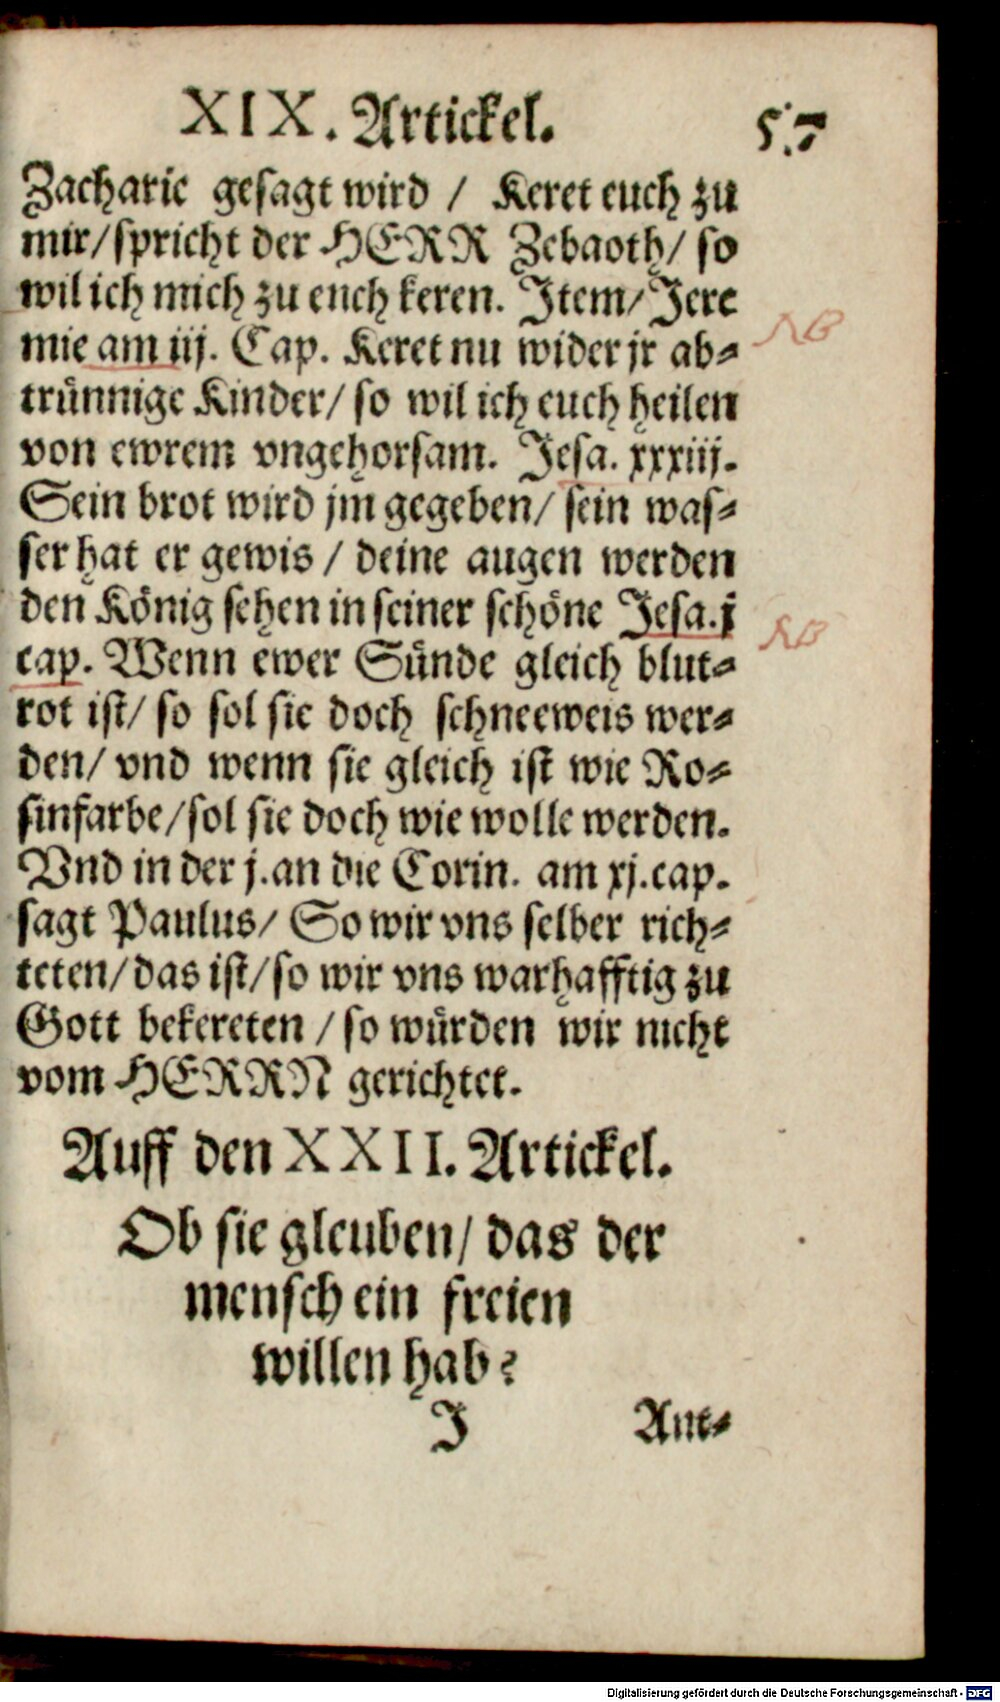 XIX. Artickel. 57
Zacharie gesagt wird / Keret euch zu
mir/ spricht der HERR Zebaoth/ so
wil ich mich zu euch keren. Item/ Jere
mie am iij. Cap. Keret nu wider jr ab-
trünnige Kinder/ so wil ich euch heilen
von ewrem vngehorsam. Jesa. xxxiij.
Sein brot wird jm gegeben/ sein was-
ser hat er gewis / deine augen werden
den König sehen in seiner schöne Jesa. j
cap. Wenn ewer Sünde gleich blut-
rot ist/ so sol sie doch schneeweis wer-
den/ vnd wenn sie gleich ist wie Ro-
sinfarbe/ sol sie doch wie wolle werden.
Vnd in der j. an die Corin. am xj. cap.
sagt Paulus/ So wir vns selber rich-
teten/ das ist/ so wir vns warhafftig zu
Gott bekereten / so würden wir nicht
vom HERRN gerichtet.
Auff den XXII. Artickel.
Ob sie gleuben/ das der
mensch ein freien
willen hab?
J Ant-
NB
NB
Digitalisierung gefördert durch die Deutsche Forschungsgemeinschaft - DFG